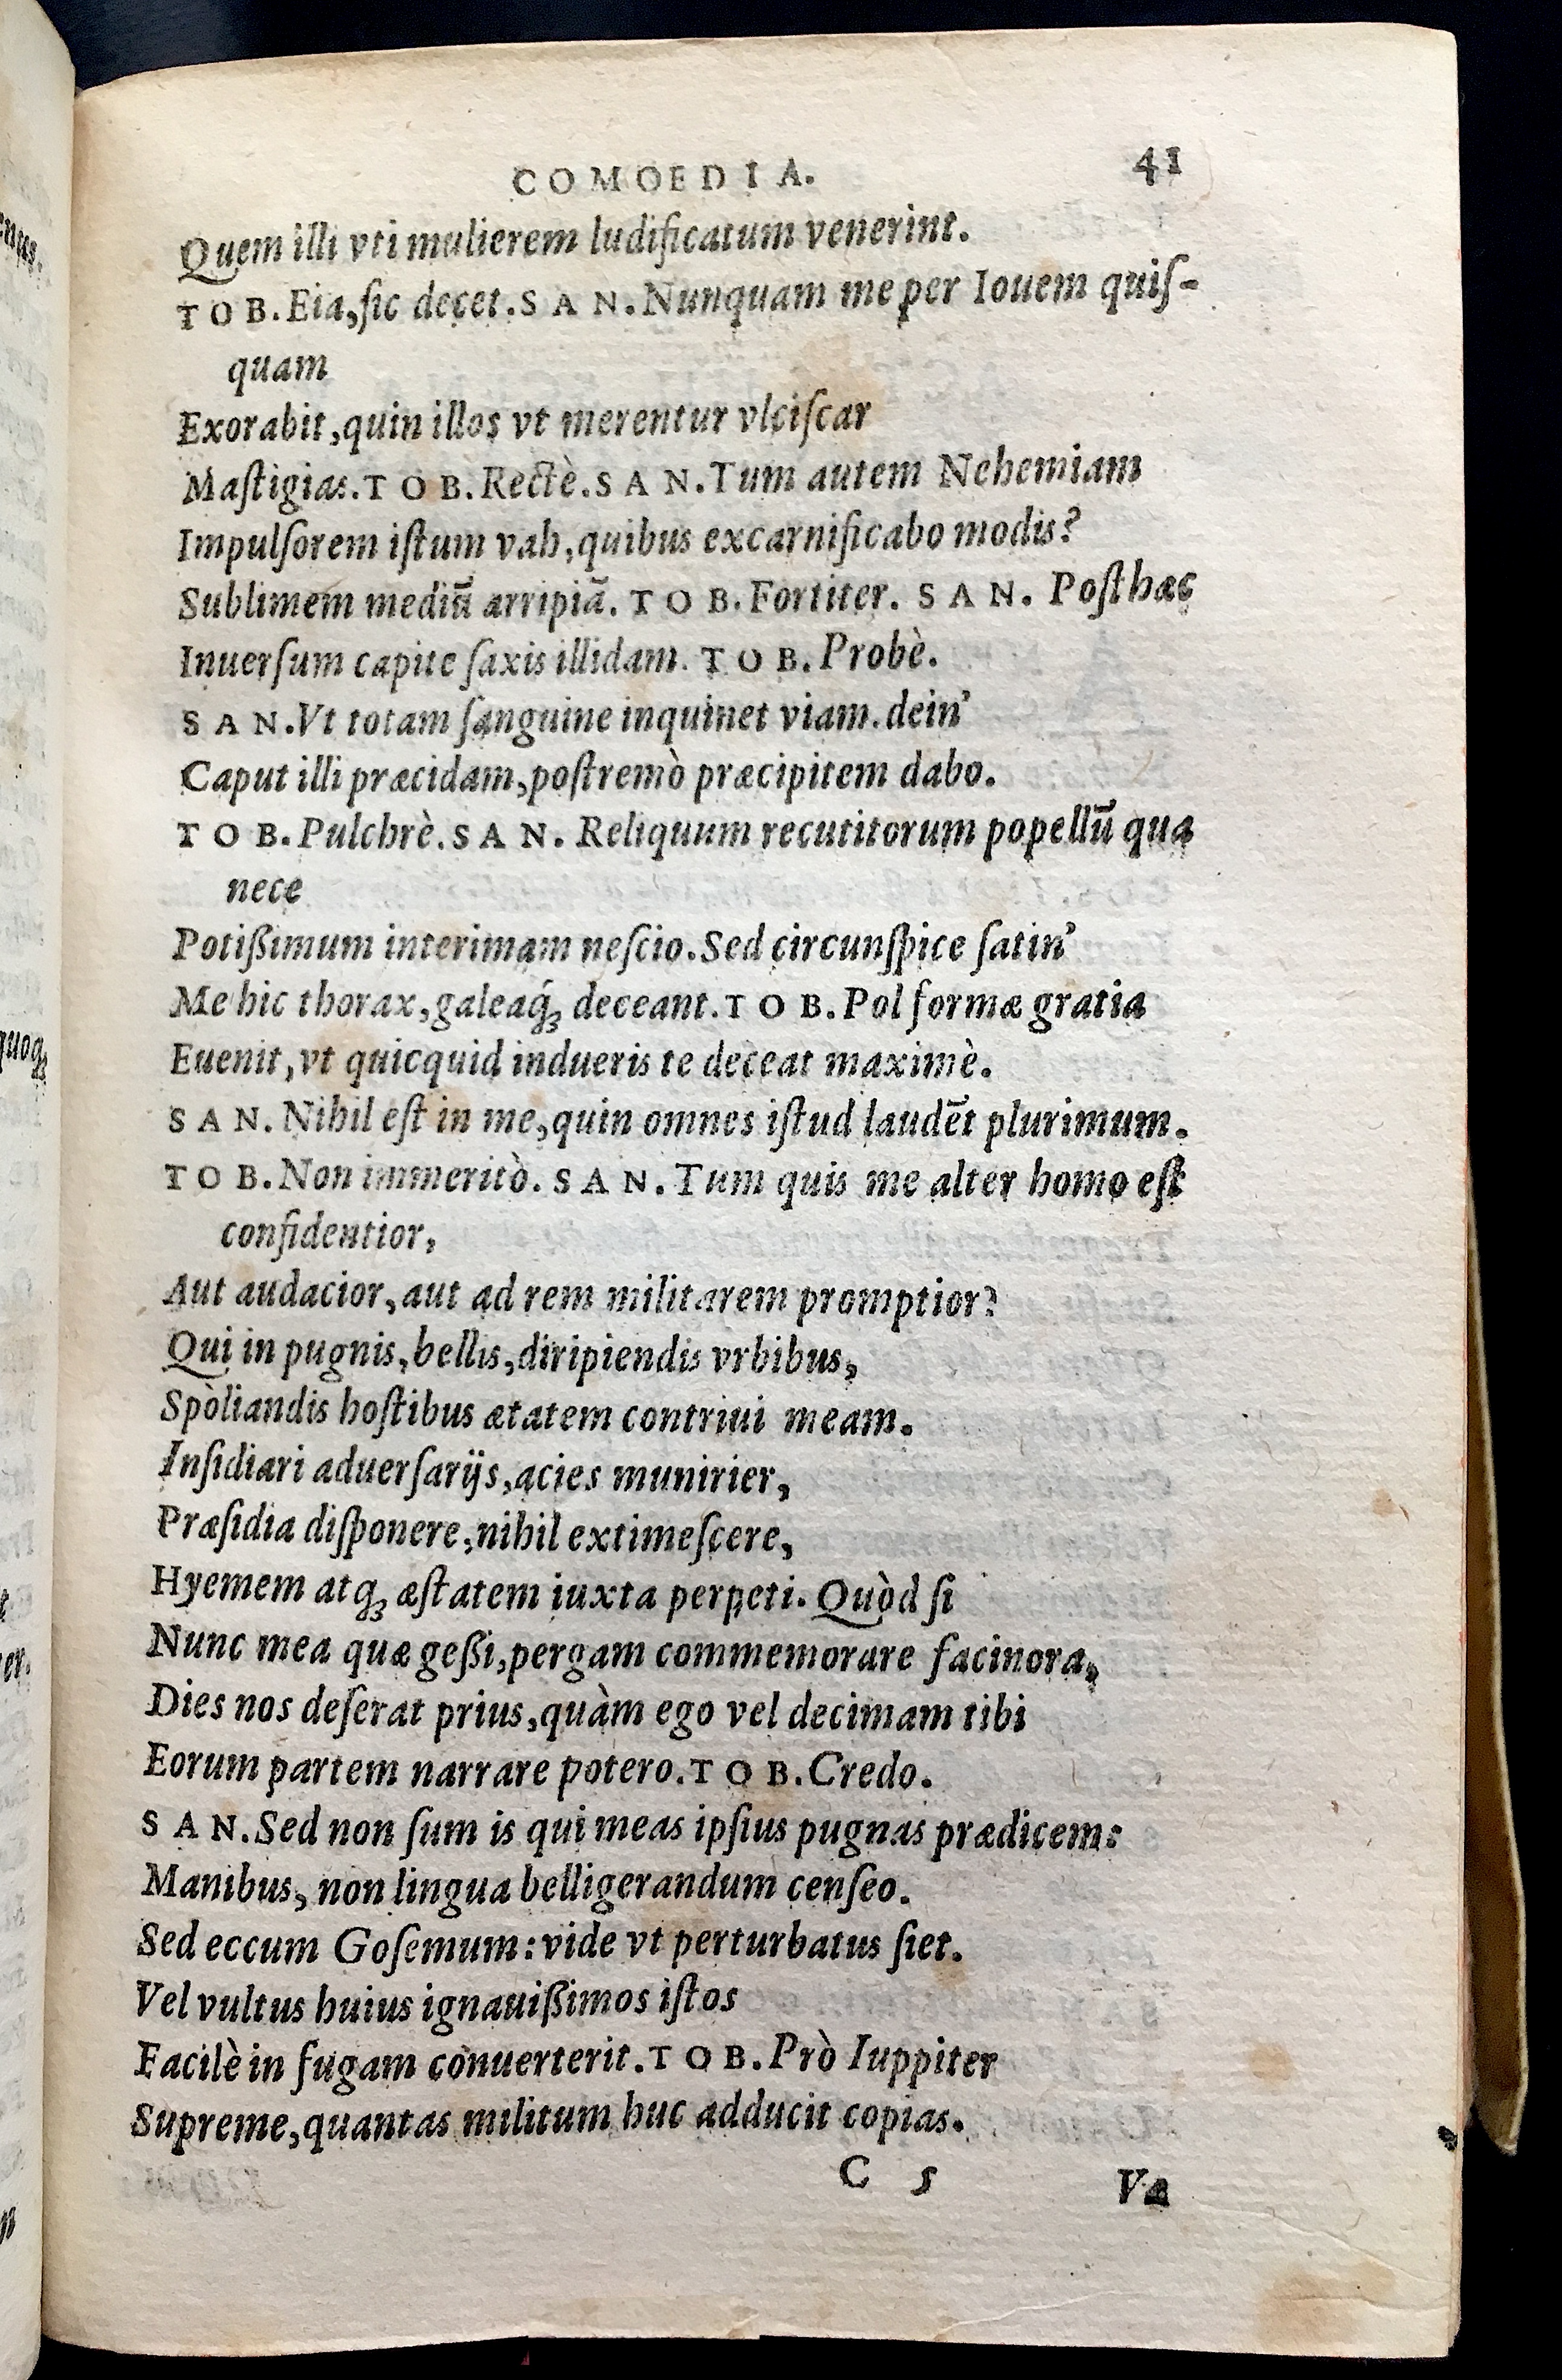 COMOEDIA. 41
Quem illi vti mulierem ludificatum venerint.
TOB. Eia, ſic decet. SAN. Nunquam me per Iouem quiſ-
quam
Exorabit, quin illos vt merentur vlciſcar
Maſtigias. TOB. Rectè. SAN. Tum autem Nehemiam
Impulſorem iſtum vah, quibus excarnificabo modis?
Sublimem mediū arripiā. TOB. Fortiter. SAN. Poſt hæc
Inuerſum capite ſaxis illidam. TOB. Probè.
SAN. Vt totam ſanguine inquinet viam. dein'
Caput illi præcidam, poſtremò præcipitem dabo.
TOB. Pulchrè. SAN. Reliquum recutitorum popellū qua
nece
Potißimum interimam neſcio. Sed circunſpice ſatin'
Me hic thorax, galeaq́; deceant. TOB. Pol formæ gratia
Euenit, vt quicquid indueris te deceat maximè.
SAN. Nihil eſt in me, quin omnes iſtud laudēt plurimum.
TOB. Non immeritò. SAN. Tum quis me alter homo eſt
confidentior,
Aut audacior, aut ad rem militarem promptior?
Qui in pugnis, bellis, diripiendis vrbibus,
Spòliandis hoſtibus ætatem contriui meam.
Inſidiari aduerſarijs, acies munirier,
Præſidia diſponere, nihil extimeſcere,
Hyemem atq; æſtatem iuxta perpeti. Quòd ſi
Nunc mea quæ geßi, pergam commemorare facinora,
Dies nos deſerat prius, quàm ego vel decimam tibi
Eorum partem narrare potero. TOB. Credo.
SAN. Sed non ſum is qui meas ipſius pugnas prædicem:
Manibus, non lingua belligerandum cenſeo.
Sed eccum Goſemum: vide vt perturbatus ſiet.
Vel vultus huius ignauißimos iſtos
Facilè in fugam conuerterit. TOB. Prò Iuppiter
Supreme, quantas militum huc adducit copias.
C 5 Væ